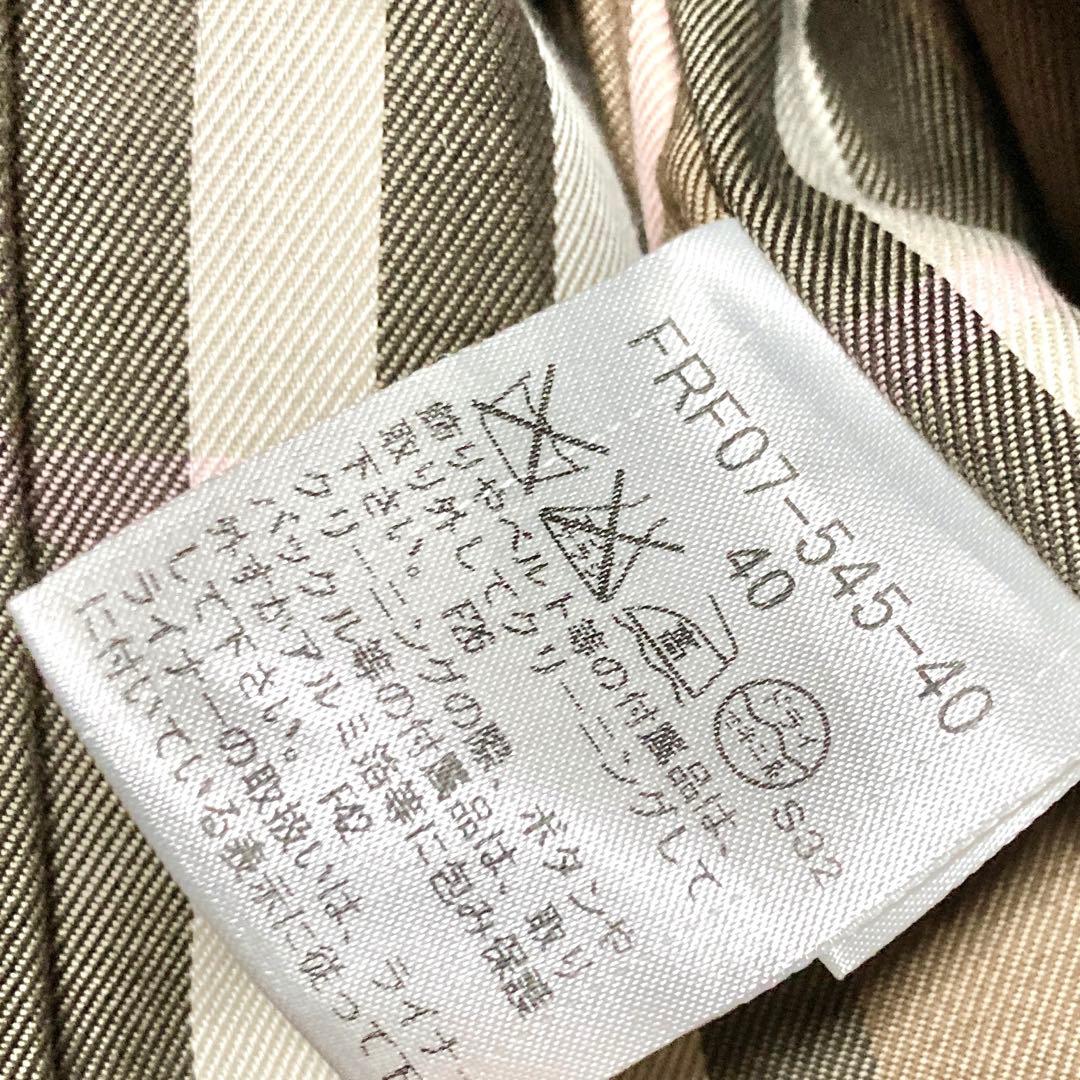 FRF07-545-40
40
エンソ
高
ドライ
セキユ系
S32
飾りやベルト等の付属品は、
取り外してクリーニングして
下さい。 E26
クリーニングの際、ボタンや
バックル等の付属品は、取り
外すかアルミ箔等に包み保護
して下さい。 F42
ライナーの取扱いは、ライナー
に付いている表示に従って下